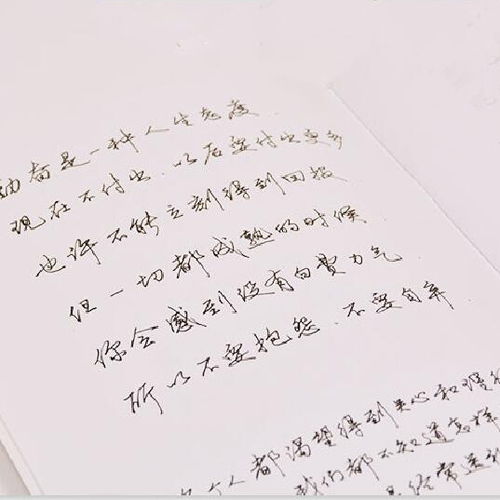 都是一种人生态度
现在不付出、以后要付出更多
也许不能立刻得到回报
但一切都成熟的时候
你会感到没有白费力气
所以不要抱怨、不要自弃
个人都渴望得到关心和
我们都不知道怎样